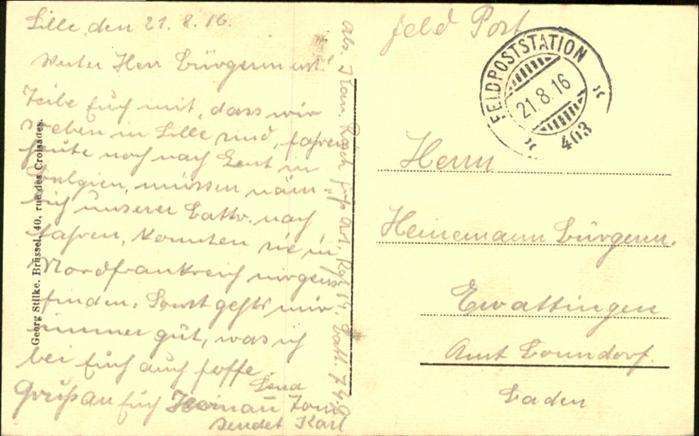 Lille, den 21.8.16.
Werter Herr Bürgermeist.
Teile Euch mit, dass wir
soeben in Lille sind, fahren
heute noch nach Gent in
Belgien, müssen näm-
lich unserer Battr. nach
fahren, konnten sie in
Nordfrankreich nirgens
finden. Sonst gehts mir
immer gut, was ich
bei Euch auch hoffe
Gruß an Euch
sendet Karl
Abs. Kan. Fuß Art. Batl.
Georg Stilke, Brüssel, 40, rue des Croisades.
Feld Post
FELDPOSTSTATION
21.8.16
403
Herrn
Heinemann Bürgerm.
Ewattingen
Amt Bonndorf.
Baden